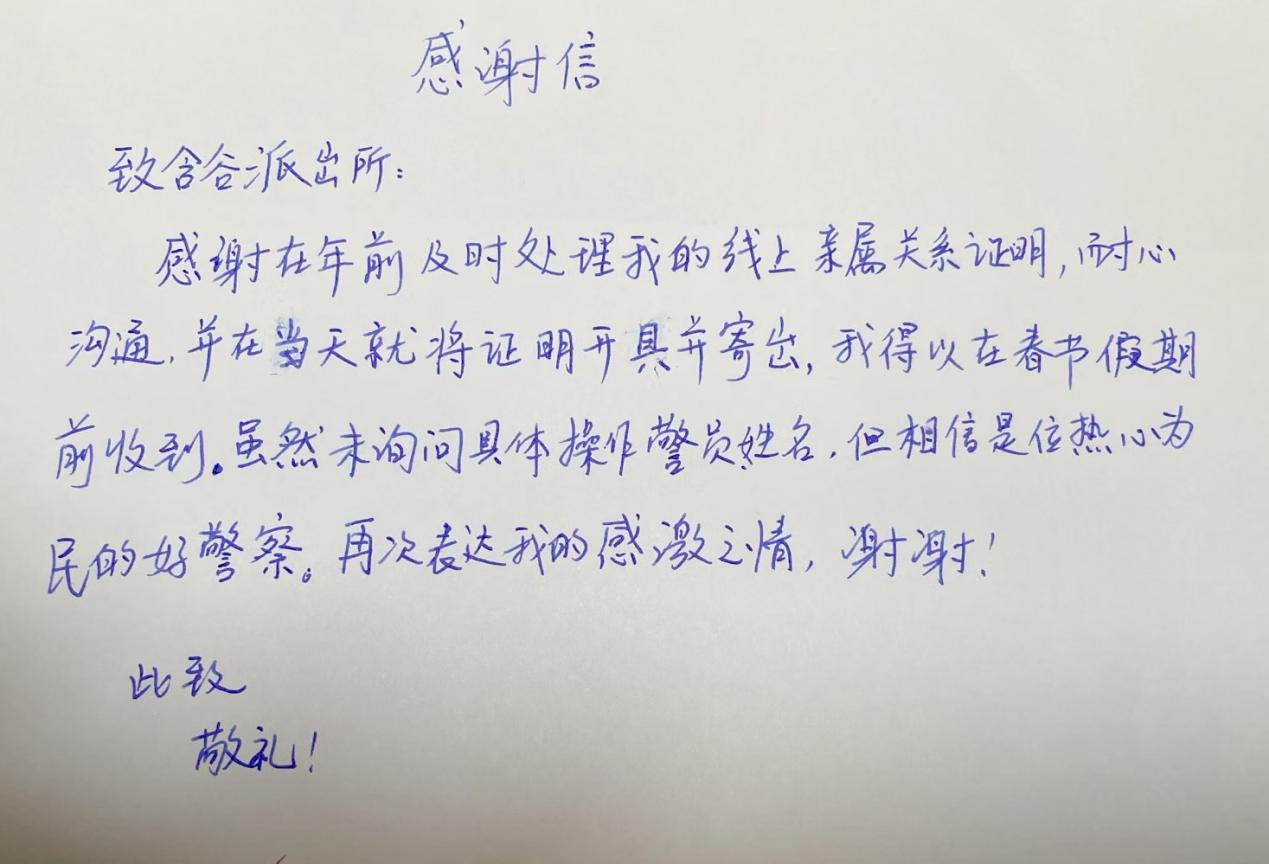 感谢信
致含谷派出所：
感谢在年前及时处理我的线上亲属关系证明，耐心
沟通，并在当天就将证明开具并寄出，我得以在春节假期
前收到。虽然未询问具体操作警员姓名，但相信是位热心为
民的好警察。再次表达我的感激之情，谢谢！
此致
敬礼！